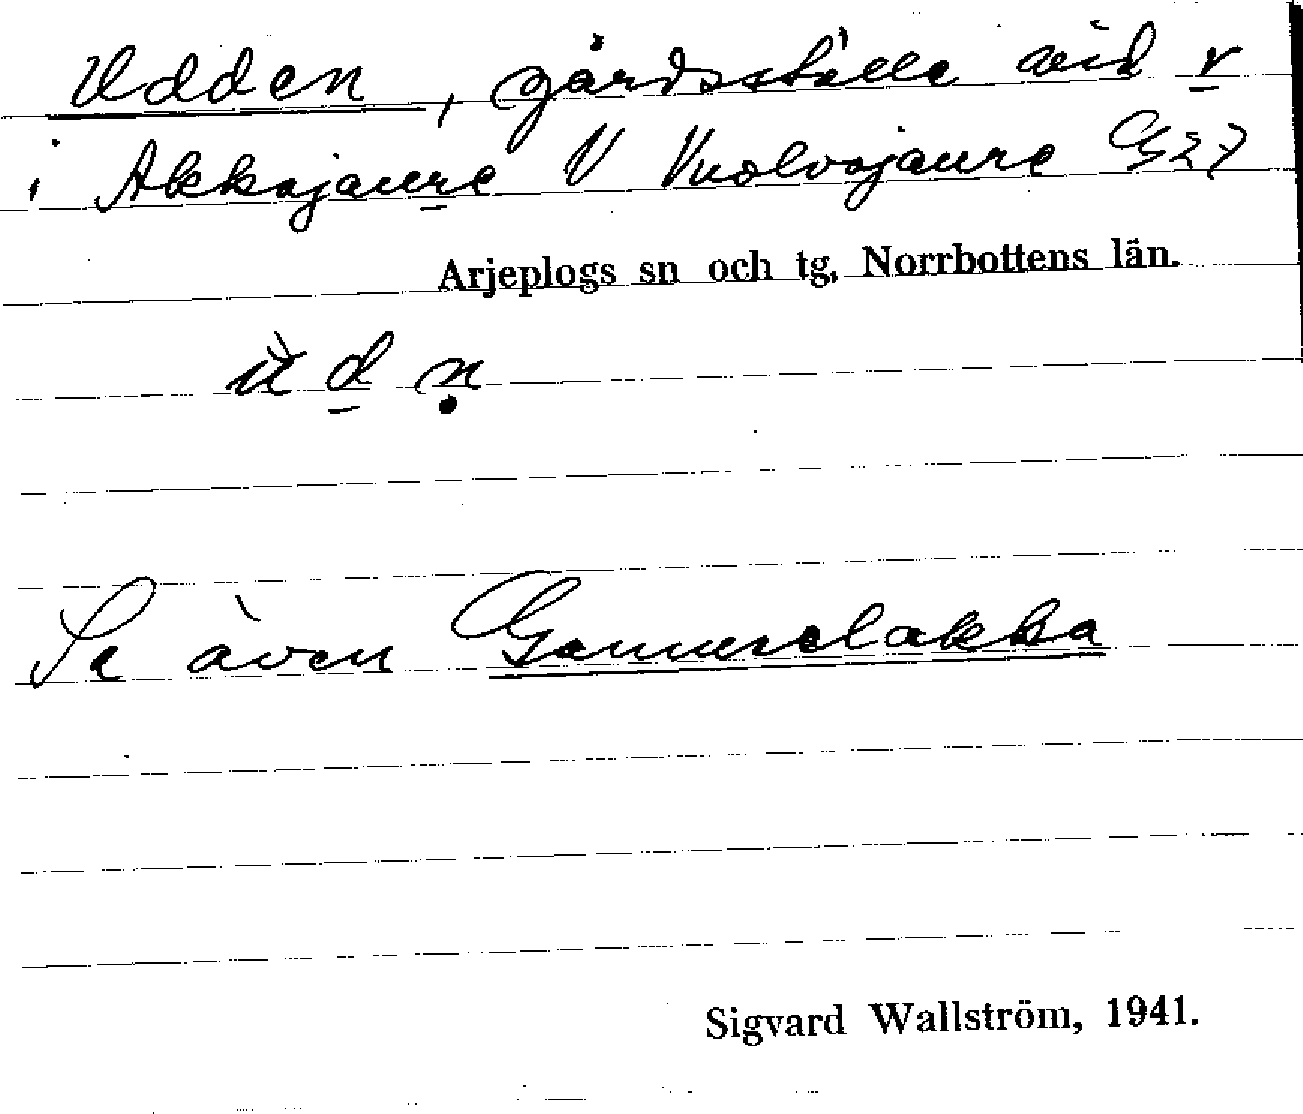 Udden, gårdsställe vid v
i Akkajaure V Vuolvojaure G27
Arjeplogs sn och tg. Norrbottens län.
ù d n̥
Se även Gannerelakka
Sigvard Wallström, 1941.